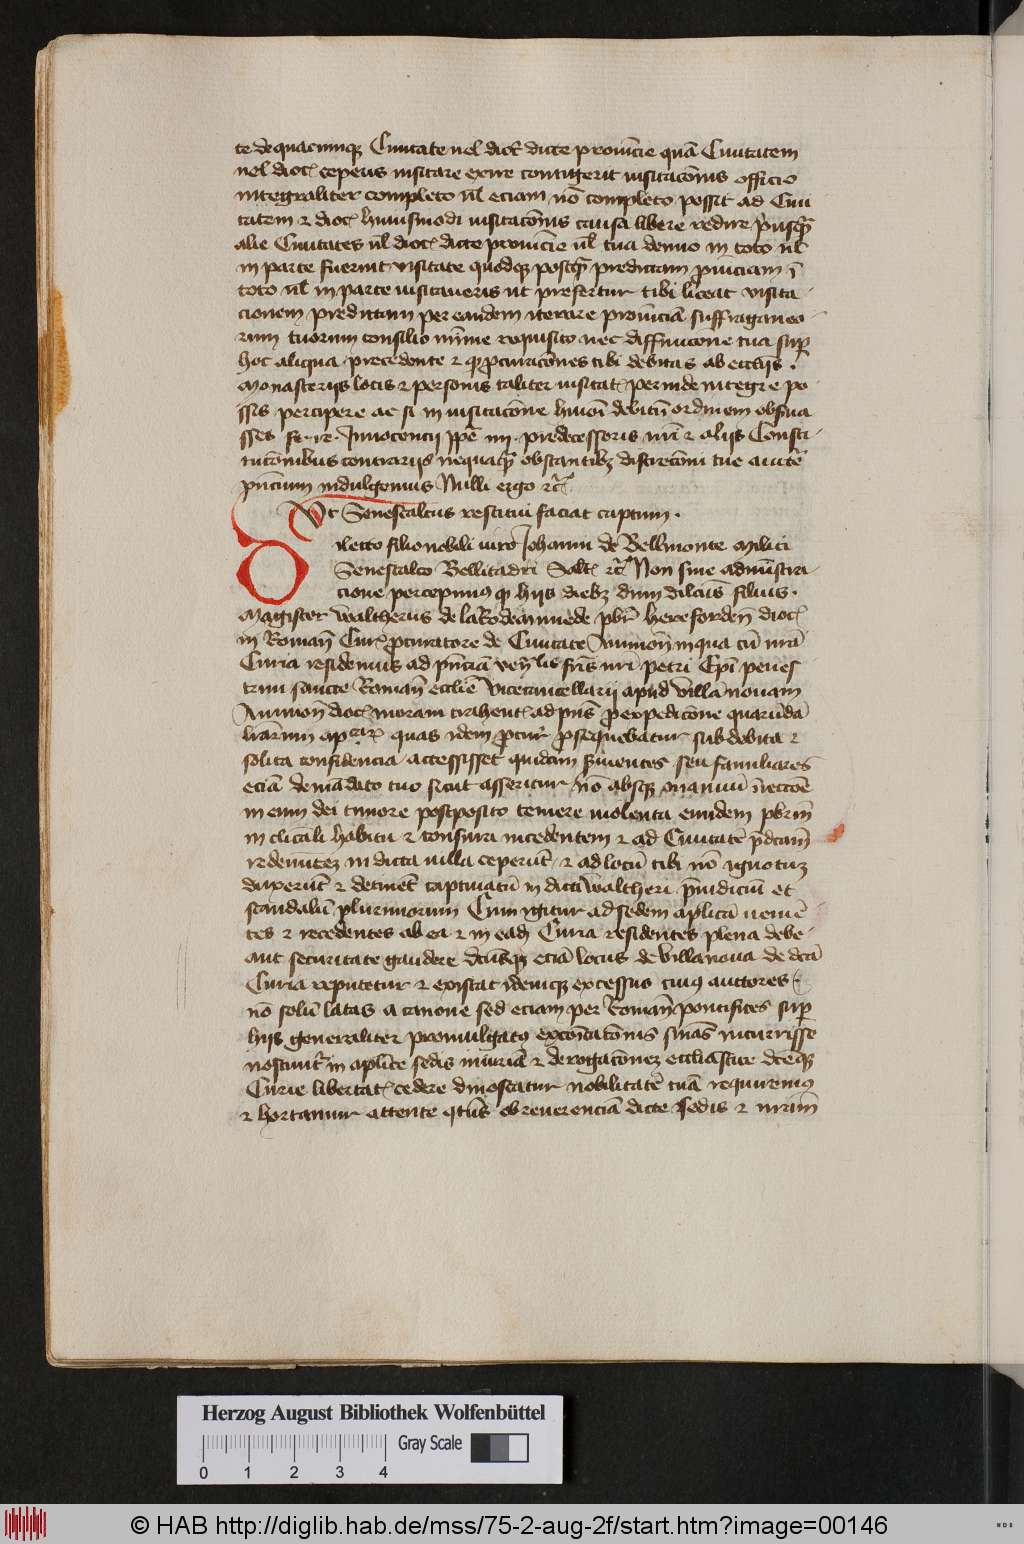 te de quacumque Ciuitate uel dioc̄ dicte prouīcie quā Ciuitatem
uel dioc̄ ceperis uisitare exire contigerit uisitacōnis officio
integraliter completo ul̄ eciam nō completo possit ad Ciui
tatem et dioc̄ huiusmodi uisitacōnis causa libere redire p̄usq̄
alie Ciuitates ul̄ dioc̄ dicte prouīcie ul̄ tua denuo in toto ul̄
in parte fuerint visitate quodque postq̄ predictam prouīciam ī
toto ul̄ in parte uisitaueris ut prefertur tibi liceat visita
cionem predictam per eandem iterare prouīciā suffraganeo
rum tuorum consilio mīme requisito nec diffinicōne tua sup
hoc aliqua precedente et q procuracōnes tibi debitas ab eccliis
Monasteriis locis et personis taliter uisitat̄ perinde integre po
ssis percipere ac si in uisitacōne huiōi debitū ordinem obserua
sses fe. re. Innocencii pp̄e iiii. predecessoris nr̄i et aliis Consti
tucōnibus contrariis nequaq̄ obstantibz discrecōni tue auctē
pn̄cium indulgemus Nulli ergo etc̄
Ut Senescalcus restitui faciat captum.
ilecto filio nobili uiro Johanni de Bellimonte Militi
Senescalco Bellicadri Salt̄ etc̄ Non sine admīstra
cione percepimus q hiis diebz dum dilcūs filius
Magister Waltherus de la Rodeanuede pbr̄ herefordeñ dioc̄
in Romañ Cur̄ procuratore de Ciuitate Auinioñ in qua cū nr̄a
Curia residemus ad pn̄ciā veñlis fr̄is nr̄i petri Ep̄i penes
trini sancte Romañ ecclie Vicecancellarii apud villā nouam
Auinioñ dioc̄ moram trahent̄ ad pn̄s pro expedicōne quarūdā
lr̄arum apcar̄ quas idem procur prosequebatur sub debita et
solita confidencia accessisset quidam seruientes seu familiares
eciā de mādato tuo sicut asseritur nō absque manuū iniectōe
in eum dei timore postposito temere uiolenta eundem pbrm̄
in clīcali habitu et tonsura incedentem et ad Ciuitatē p̄dcam̄
redeuntez in dicta uilla ceperūt et ad locū tibi nō ignotuz
duxerūt et detinēt captiuatū in dicti Waltheri p̄iudiciū et
scandalū plurimorum Cum igitur ad sedem aplicā ueniē
tes et recedentes ab ea et in eadȝ Curia residentes plena debe
ant securitate gaudere dictusque eciā locus de Villanoua de dcā
Curia reputetur et existat ydemque excessus cuius auctores
nō solū latas a canone sed eciam per Romañ pontifices sup
hiis generaliter promulgatas excōicatōnis sn̄ias incurrisse
noscunt̄ in aplice sedis iniuriā et derogatōnez eccliastice dcēque
Curie libertat̄ cedere dinoscatur nobilitatē tuā requirimus
et hortamur attente qtūs ob reuerenciā dicte sedis et nr̄am
Herzog August Bibliothek Wolfenbüttel
Gray Scale
0 1 2 3 4
© HAB http://diglib.hab.de/mss/75-2-aug-2f/start.htm?image=00146